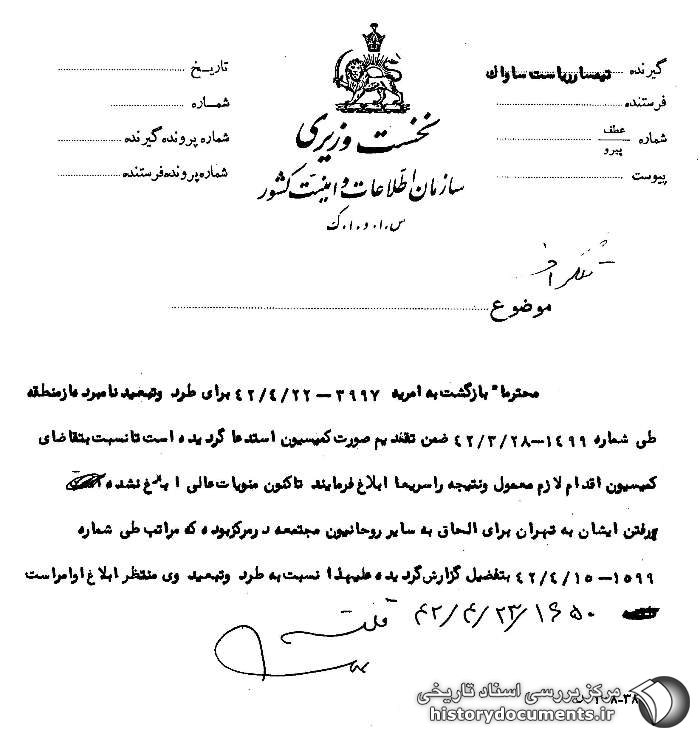 گیرنده تیمسار ریاست ساواک
فرستنده
شماره عطف پیرو
پیوست
نخست وزیری
سازمان اطلاعات و امنیت کشور
س.ا.و.ا.ک
تاریخ
شماره
شماره پرونده گیرنده
شماره پرونده فرستنده
موضوع
محترما" بازگشت به امریه ۳۹۹۷-۴۲/۴/۲۲ برای طرد وتبعید نامبرده ازمنطقه
طی شماره ۱۴۹۹-۴۲/۳/۲۸ ضمن تقدیم صورت کمیسیون استدعا گردیده است تانسبت بتقاضای
کمیسیون اقدام لازم معمول ونتیجه راسریعا ابلاغ فرمایند تاکنون منویات عالی ابلاغ نشده
برفتن ایشان به تهران برای الحاق به سایر روحانیون مجتمعه درمرکزبوده که مراتب طی شماره
۱۵۹۹-۴۲/۴/۱۵ بتفضیل گزارش گردیده علیهذا نسبت به طرد وتبعید وی منتظر ابلاغ اوامراست
۱۶۵۰ ۴۲/۴/۲۳
مرکز بررسی اسناد تاریخی
historydocuments.ir